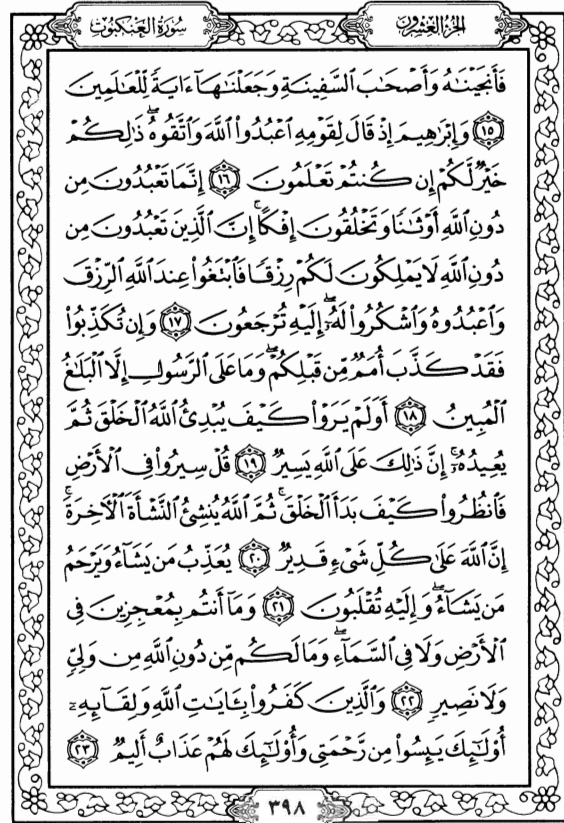 سُورَةُ العَنكَبُوتِ
الجُزْءُ العِشْرُونَ
فَأَنجَيْنَـٰهُ وَأَصْحَـٰبَ ٱلسَّفِينَةِ وَجَعَلْنَـٰهَآ ءَايَةً لِّلْعَـٰلَمِينَ
١٥ وَإِبْرَٰهِيمَ إِذْ قَالَ لِقَوْمِهِ ٱعْبُدُوا۟ ٱللَّهَ وَٱتَّقُوهُ ۖ ذَٰلِكُمْ
خَيْرٌ لَّكُمْ إِن كُنتُمْ تَعْلَمُونَ ١٦ إِنَّمَا تَعْبُدُونَ مِن
دُونِ ٱللَّهِ أَوْثَـٰنًا وَتَخْلُقُونَ إِفْكًا ۚ إِنَّ ٱلَّذِينَ تَعْبُدُونَ مِن
دُونِ ٱللَّهِ لَا يَمْلِكُونَ لَكُمْ رِزْقًا فَٱبْتَغُوا۟ عِندَ ٱللَّهِ ٱلرِّزْقَ
وَٱعْبُدُوهُ وَٱشْكُرُوا۟ لَهُۥٓ ۖ إِلَيْهِ تُرْجَعُونَ ١٧ وَإِن تُكَذِّبُوا۟
فَقَدْ كَذَّبَ أُمَمٌ مِّن قَبْلِكُمْ ۖ وَمَا عَلَى ٱلرَّسُولِ إِلَّا ٱلْبَلَـٰغُ
ٱلْمُبِينُ ١٨ أَوَلَمْ يَرَوْا۟ كَيْفَ يُبْدِئُ ٱللَّهُ ٱلْخَلْقَ ثُمَّ
يُعِيدُهُۥٓ ۚ إِنَّ ذَٰلِكَ عَلَى ٱللَّهِ يَسِيرٌ ١٩ قُلْ سِيرُوا۟ فِى ٱلْأَرْضِ
فَٱنظُرُوا۟ كَيْفَ بَدَأَ ٱلْخَلْقَ ۚ ثُمَّ ٱللَّهُ يُنشِئُ ٱلنَّشْأَةَ ٱلْـَٔاخِرَةَ ۚ
إِنَّ ٱللَّهَ عَلَىٰ كُلِّ شَىْءٍ قَدِيرٌ ٢٠ يُعَذِّبُ مَن يَشَآءُ وَيَرْحَمُ
مَن يَشَآءُ ۖ وَإِلَيْهِ تُقْلَبُونَ ٢١ وَمَآ أَنتُم بِمُعْجِزِينَ فِى
ٱلْأَرْضِ وَلَا فِى ٱلسَّمَآءِ ۖ وَمَا لَكُم مِّن دُونِ ٱللَّهِ مِن وَلِىٍّ
وَلَا نَصِيرٍ ٢٢ وَٱلَّذِينَ كَفَرُوا۟ بِـَٔايَـٰتِ ٱللَّهِ وَلِقَآئِهِۦٓ
أُو۟لَـٰٓئِكَ يَئِسُوا۟ مِن رَّحْمَتِى وَأُو۟لَـٰٓئِكَ لَهُمْ عَذَابٌ أَلِيمٌ ٢٣
٣٩٨